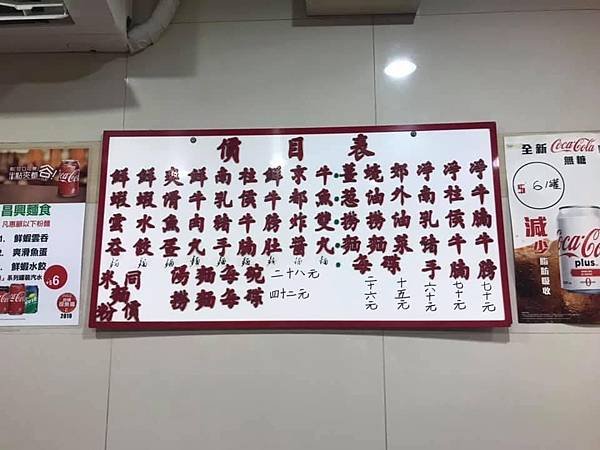 價目表
淨牛腩牛膀 七十元
淨柱侯牛腩 七十元
淨南乳豬手 六十元
郊外油菜 碟 十五元
油撈麵
薑葱撈麵 每碟 二十六元
牛魚雙丸
京都炸醬
鮮牛膀肚
柱侯牛腩
南乳豬手
鮮牛肉丸
爽滑魚蛋
鮮蝦水餃
鮮蝦雲吞
湯麵每碗 二十八元
撈麵每碟 四十二元
米粉麵同價
昌興麵食
凡惠顧以下粉麵
1. 鮮蝦雲吞
2. 爽滑魚蛋
3. 鮮蝦水餃
+$6
2018
全新 Coca-Cola
無糖
$ 6/罐
減少
脂肪吸收
Coca-Cola
plus